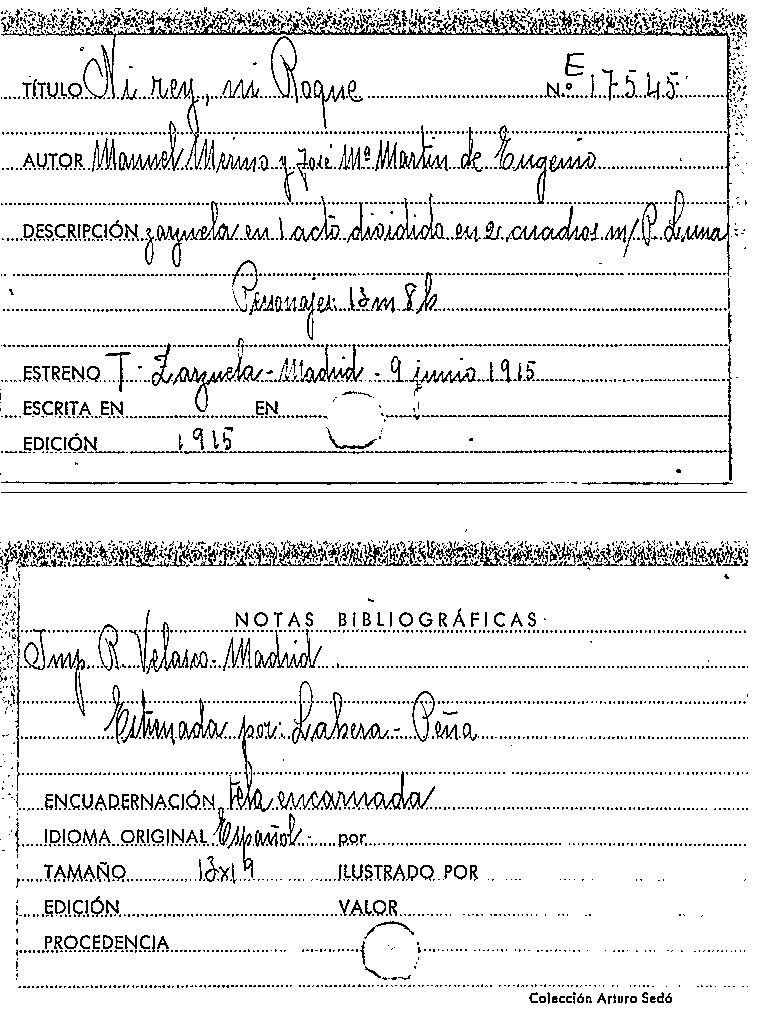 TÍTULO Ni rey, ni Roque N.º E 17545
AUTOR Manuel Merino y José Mª Martín de Eugenio
DESCRIPCIÓN zarzuela en 1 acto dividido en 2 cuadros m/ P. Luna
Personajes 13 m 8 h
ESTRENO T. Zarzuela - Madrid - 9 junio 1915
ESCRITA EN EN
EDICIÓN 1915
NOTAS BIBLIOGRÁFICAS
Imp. R. Velasco. Madrid
Estrenada por: - Peña
ENCUADERNACIÓN Tela encarnada
IDIOMA ORIGINAL Español por
TAMAÑO 13x19 ILUSTRADO POR
EDICIÓN VALOR
PROCEDENCIA
Colección Arturo Sedó